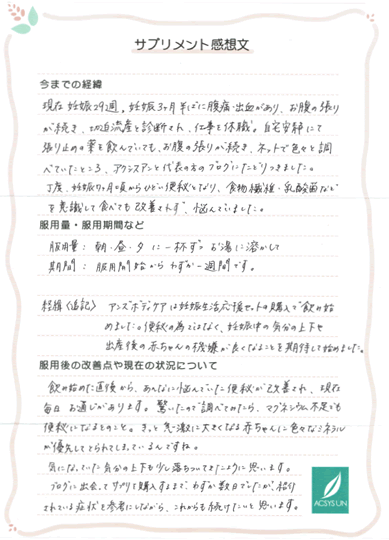 サプリメント感想文
今までの経緯
現在 妊娠29週。妊娠3ヶ月半ばに腹痛・出血があり、お腹の張り
が続き、切迫流産と診断され、仕事を休職。自宅安静にて
張り止めの薬を飲んでいても、お腹の張りが続き、ネットで色々と調
べていたところ、アクシスアンと代表の方のブログにたどりつきました。
丁度、妊娠7ヶ月頃からひどい便秘となり、食物繊維・乳酸菌など
を意識して食べても改善されず、悩んでいました。
服用量・服用期間など
服用量：朝・昼・夕に一杯ずつお湯に溶かして
期間：服用開始からわずか一週間です。
経緯（追記） アンズボディケアは妊娠生活応援セットの購入で飲み始
めました。便秘の為ではなく、妊娠中の気分の上下や
出産後の赤ちゃんの機嫌が良くなることを期待して始めました。
服用後の改善点や現在の状況について
飲み始めた直後から、あんなに悩んでいた便秘が改善され、現在
毎日お通じがあります。驚いたので調べてみたら、マグネシウム不足でも
便秘になるものとのこと。きっと急激に大きくなる赤ちゃんに色々なミネラル
が優先してとられてしまっているんですね。
気になっていた気分の上下も少し落ちついてきたように思います。
ブログに出会ってサプリを購入するまで、わずか数日でしたが、紹介
されている症状を参考にしながら、これからも続けたいと思います。
ACSYS UN